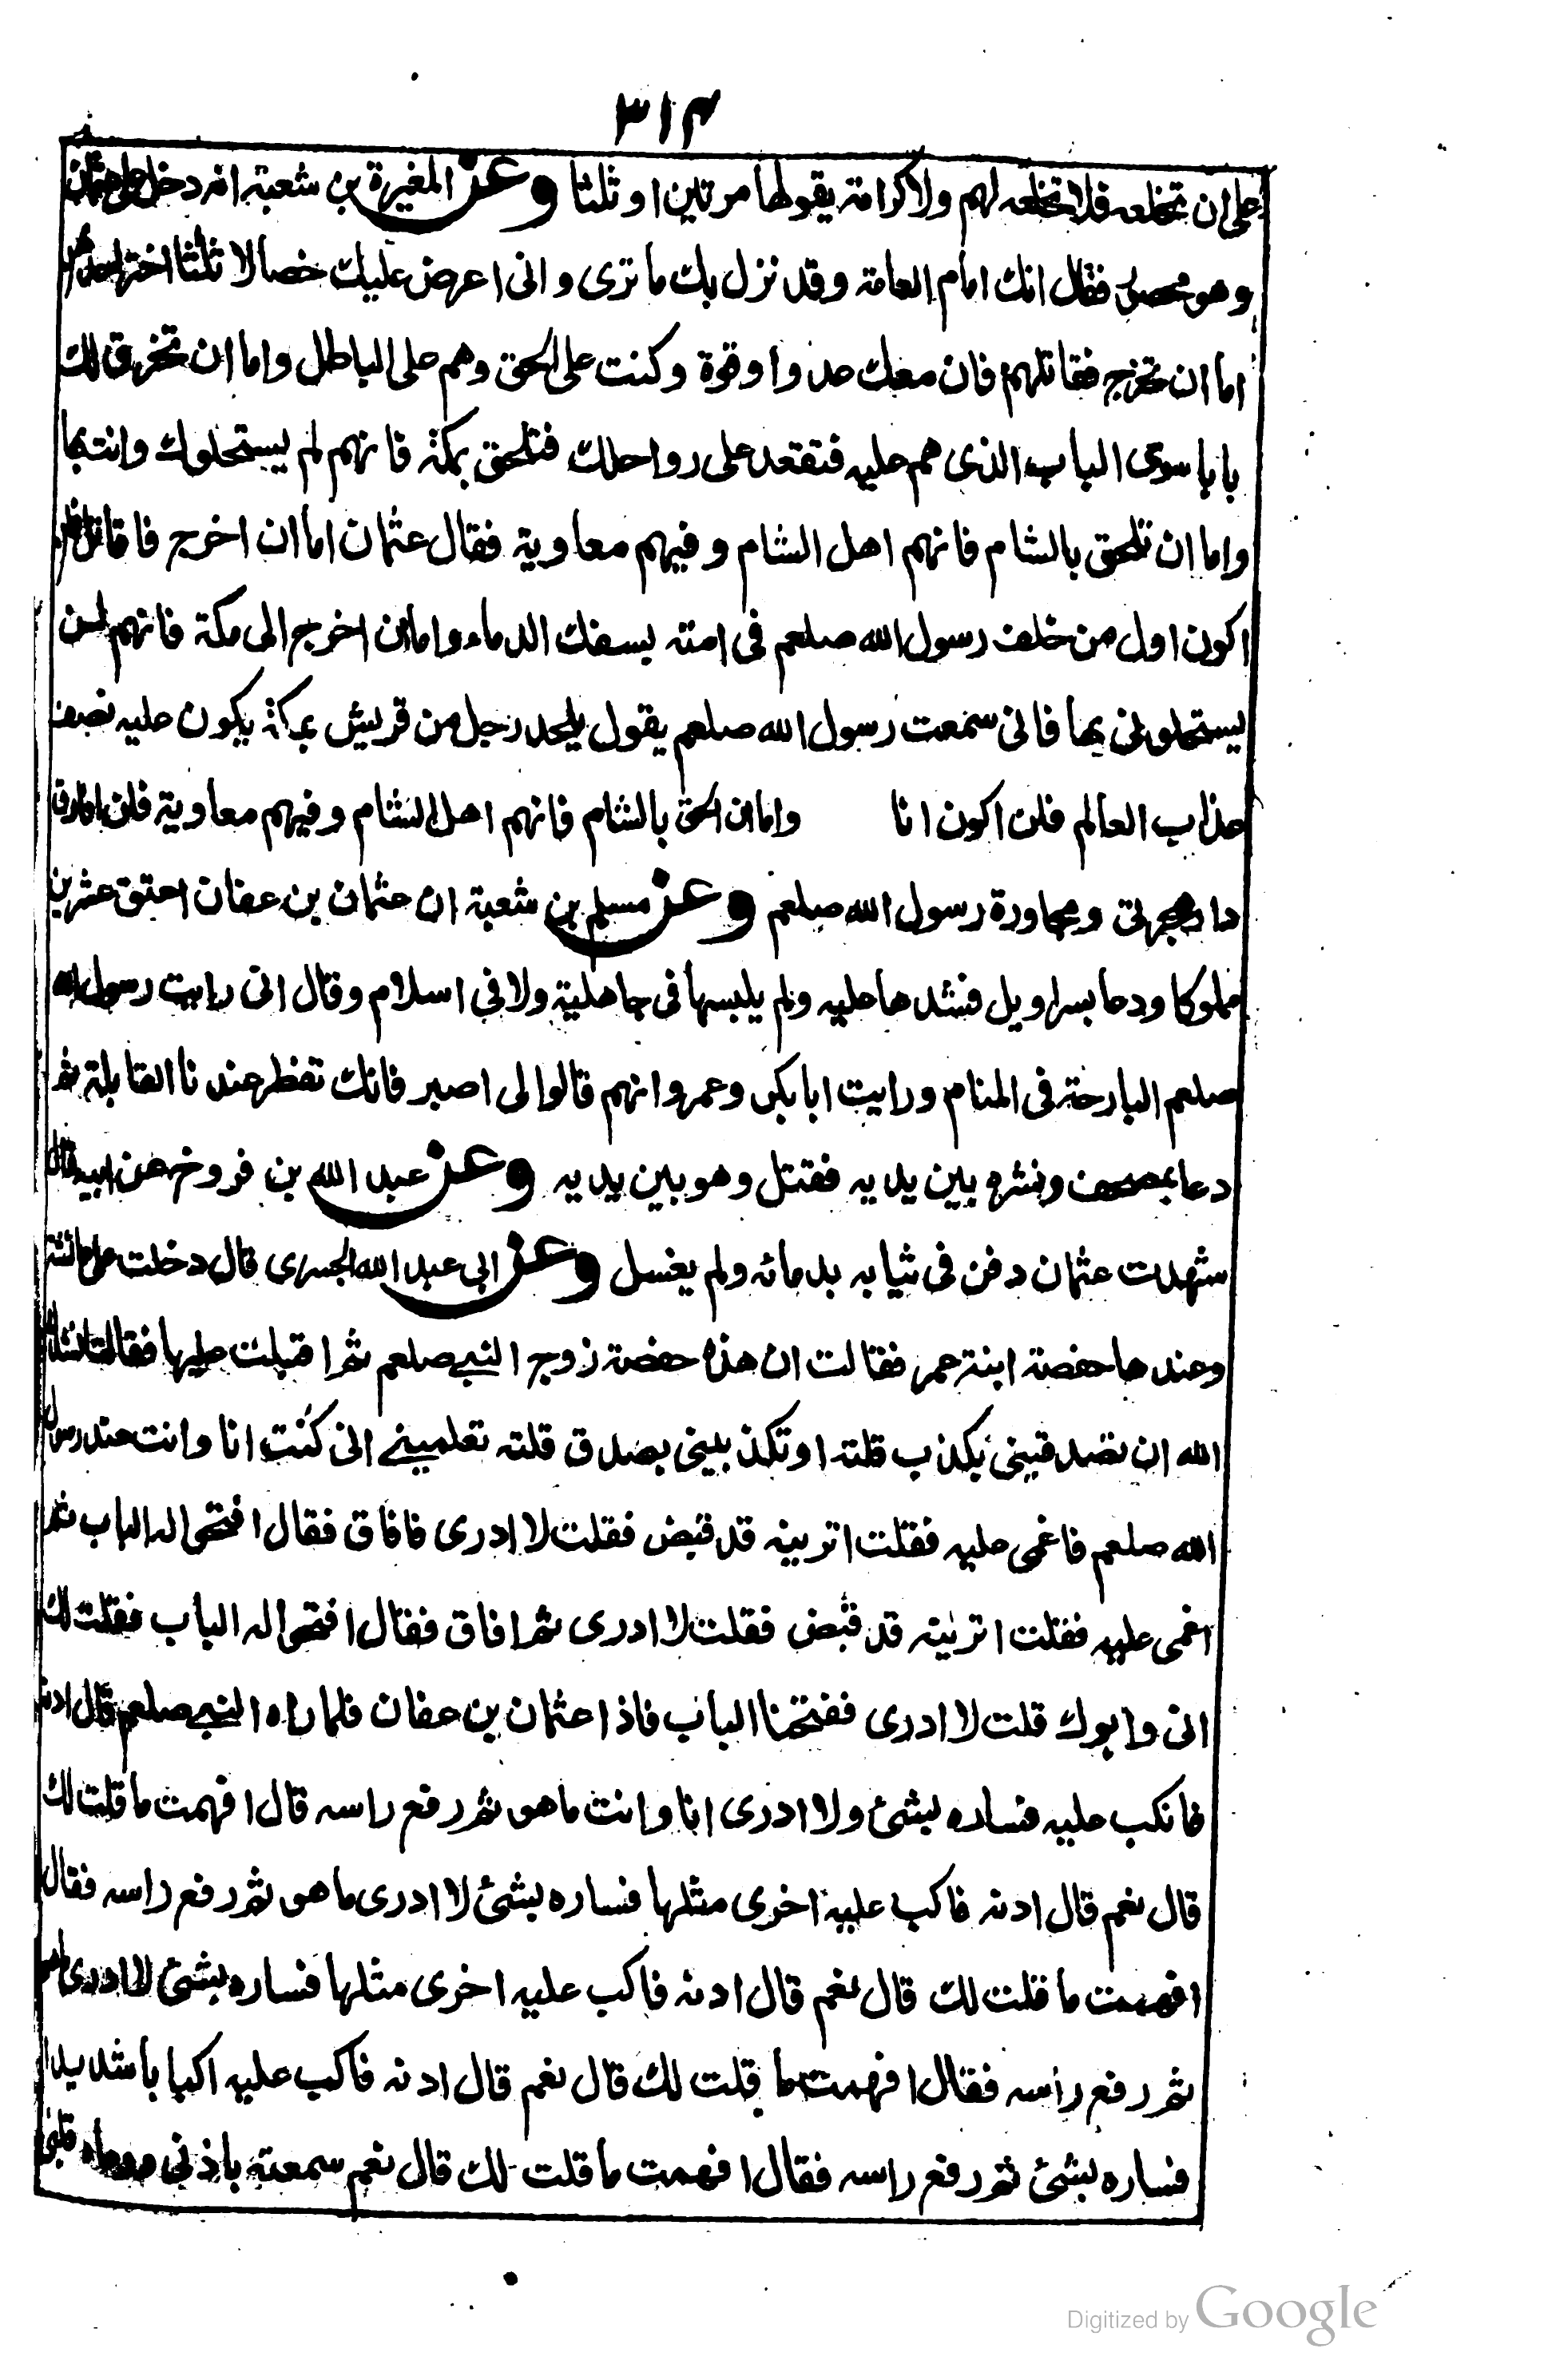 ٣١٤
على ان تخلعه فلا تخلعه لهم ولا كرامة يقولها مرتين او ثلثا وعن المغيرة بن شعبة انه دخل على عثمان
وهو محصور فقال انك امام العامة وقد نزل بك ما ترى وانى اعرض عليك خصالا ثلثا اختر احدهن
اما ان تخرج فقاتلهم فان معك عددا وقوة وكنت على الحق وهم على الباطل واما ان تخرق لك
بابا سوى الباب الذى هم عليه فتقعد على رواحلك فتلحق بمكة فانهم لم يستحلوك وانت بها
واما ان تلحق بالشام فانهم اهل الشام وفيهم معاوية فقال عثمان اما ان اخرج فاقاتل فلن
اكون اول من خلف رسول الله صلعم فى امته بسفك الدماء واما ان اخرج الى مكة فانهم لن
يستحلونى بها فانى سمعت رسول الله صلعم يقول يلحد رجل من قريش بمكة يكون عليه نصف
عذاب العالم فلن اكون انا واما ان الحق بالشام فانهم اهل الشام وفيهم معاوية فلن افارق
دار هجرتى ومجاورة رسول الله صلعم وعن مسلم بن شعبة ان عثمان بن عفان اعتق عشرين
مملوكا ودعا بسراويل فشدها عليه ولم يلبسها فى جاهلية ولا فى اسلام وقال انى رايت رسول الله
صلعم البارحة فى المنام ورايت ابا بكر وعمر وانهم قالوا لى اصبر فانك تفطر عندنا القابلة ثم
دعا بمصحف ونشره بين يديه فقتل وهو بين يديه وعن عبد الله بن فروخ عن ابيه قال
شهدت عثمان دفن فى ثيابه بدمائه ولم يغسل وعن ابى عبد الله الجسرى قال دخلت على عائشة
وعندها حفصة ابنة عمر فقالت ان هذه حفصة زوج النبى صلعم ثم اقبلت عليها فقالت انشدك
الله ان تصدقينى بكذب قلته او تكذبينى بصدق قلته تعلمينى انى كنت انا وانت عند رسول
الله صلعم فاغمى عليه فقلت اترينه قد قبض فقلت لا ادرى فافاق فقال افتحوا له الباب ثم
اغمى عليه فقلت اترينه قد قبض فقلت لا ادرى ثم افاق فقال افتحوا له الباب فقلت لك
انى وابوك قلت لا ادرى ففتحنا الباب فاذا عثمان بن عفان فلما راه النبى صلعم قال ادنه
فانكب عليه فساره بشئ ولا ادرى انا وانت ما هو ثم رفع راسه قال افهمت ما قلت لك
قال نعم قال ادنه فاكب عليه اخرى مثلها فساره بشئ لا ادرى ما هو ثم رفع راسه فقال
افهمت ما قلت لك قال نعم قال ادنه فاكب عليه اخرى مثلها فساره بشئ لا ادرى ما هو
ثم رفع راسه فقال افهمت ما قلت لك قال نعم قال ادنه فاكب عليه اكبابا شديدا
فساره بشئ ثم رفع راسه فقال افهمت ما قلت لك قال نعم سمعته باذنى ووعاه قلبى
Digitized by Google